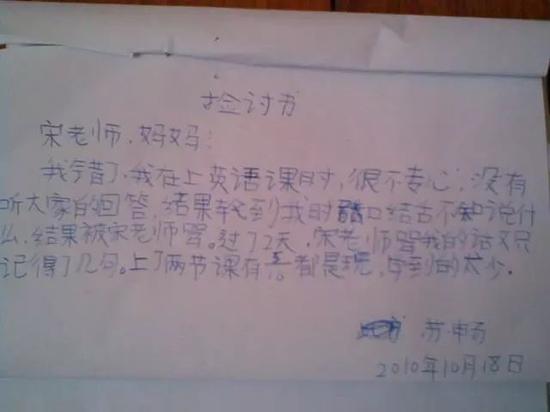 检讨书
宋老师，妈妈：
我错了，我在上英语课时，很不专心，没有
听大家的回答，结果轮到我时口结舌不知说什
么，结果被宋老师骂。过了2天，宋老师骂我的话又只
记得了几句。上了两节课有都是玩，学到的太少。
苏畅
2010年10月18日